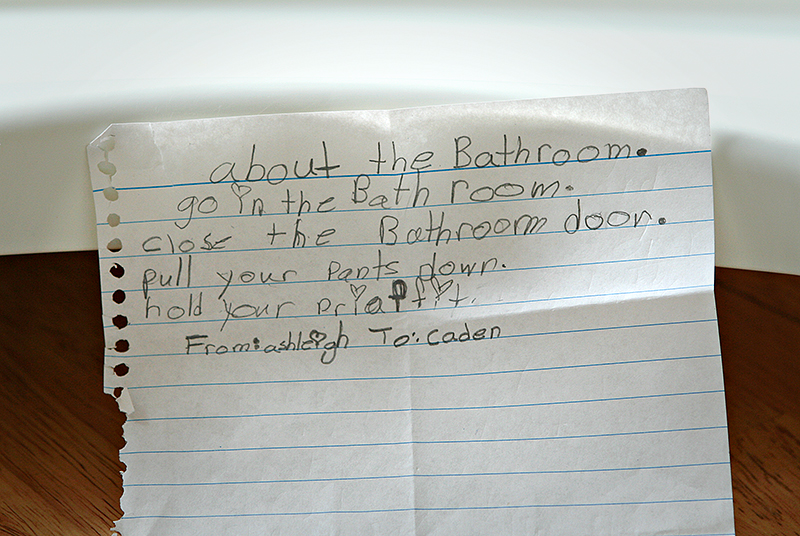 about the Bathroom.
go in the Bath room.
close the Bathroom door.
pull your pants down.
hold your
From: ashleigh To: Caden